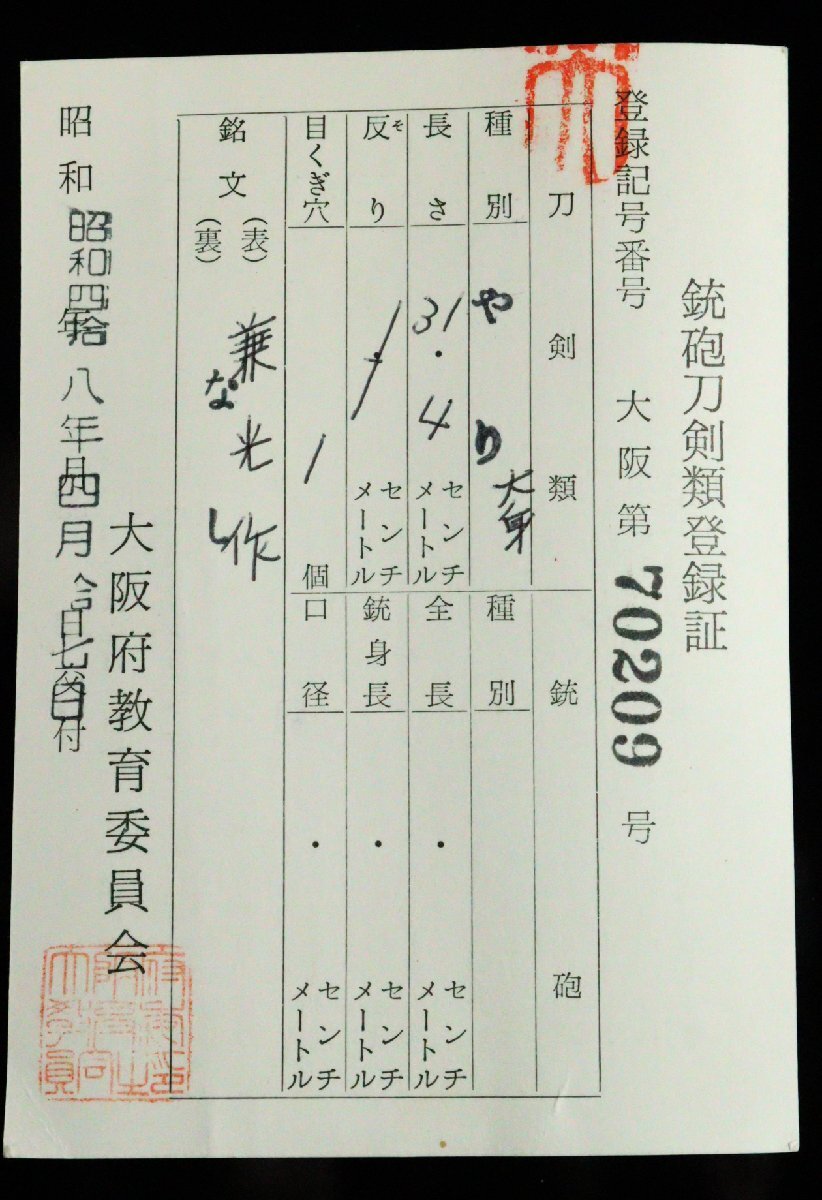 銃砲刀剣類登録証
登録記号番号 大阪第 70209 号
刀剣類 銃砲
種別 やり 大身
種別
長さ 31.4 センチメートル
全長 . センチメートル
反り そ センチメートル
銃身長 . センチメートル
目くぎ穴 1 個
口径 . センチメートル
銘文 (表) 兼光作
(裏) なし
大阪府教育委員会
昭和 昭和四拾八年四月
年 月 日 交付